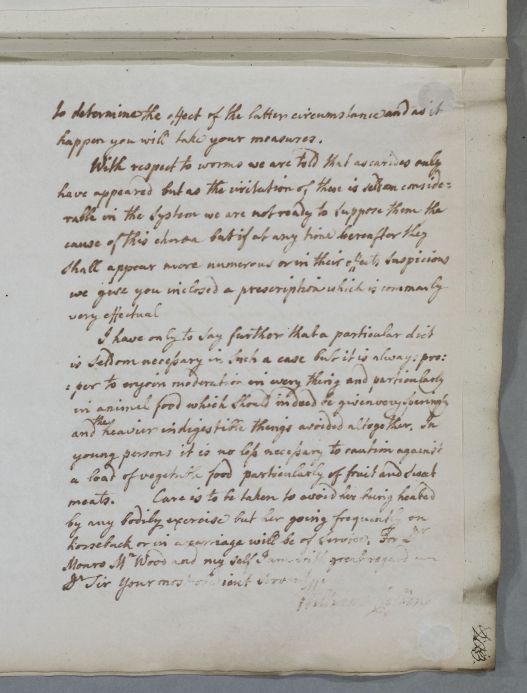 to determine the effect of the latter circumstance and as it
happen you will take your measures.
With respect to worms we are told that ascarides only
have appeared but as the irritation of these is seldom conside=
rable in the system we are not ready to suppose them the
cause of this chorea but if at any time hereafter they
shall appear more numerous or in their effects suspicious
we give you inclosed a prescription which is commonly
very effectual
I have only to say further that a particular diet
is seldom necessary in such a case but it is always pro=
=per to enjoin moderation in every thing and particularly
in animal food which should indeed be given very sparingly
and the heavier indigestible things avoided altogether. In
young persons it is no less necessary to caution against
a load of vegetable food particularly of fruit and sweat
meats. Care is to be taken to avoid her being heated
by any bodily exercise but her going frequently on
horseback or in a carriage will be of service. For Dr
Monro Mr Wood and my self I am with great regard
Dr Sir Your most obedient servant
William